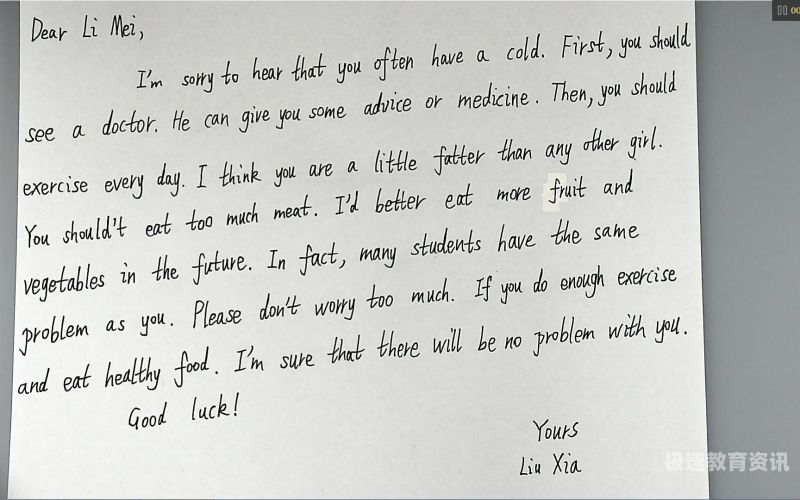 Dear Li Mei,
I'm sorry to hear that you often have a cold. First, you should
see a doctor. He can give you some advice or medicine. Then, you should
exercise every day. I think you are a little fatter than any other girl.
You should't eat too much meat. I'd better eat more fruit and
vegetables in the future. In fact, many students have the same
problem as you. Please don't worry too much. If you do enough exercise
and eat healthy food. I'm sure that there will be no problem with you.
Good luck!
Yours
Liu Xia
极速教育资讯
00